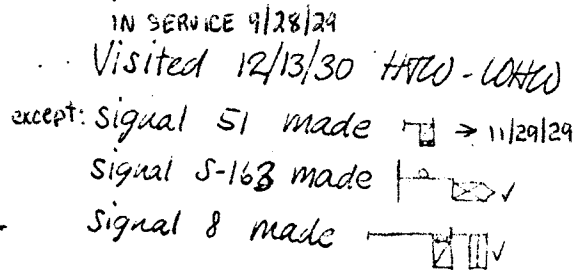 IN SERVICE 9/28/29
Visited 12/13/30 HTW - WHW
except: signal 51 made → 11/29/29
signal S-163 made ✓
signal 8 made ✓